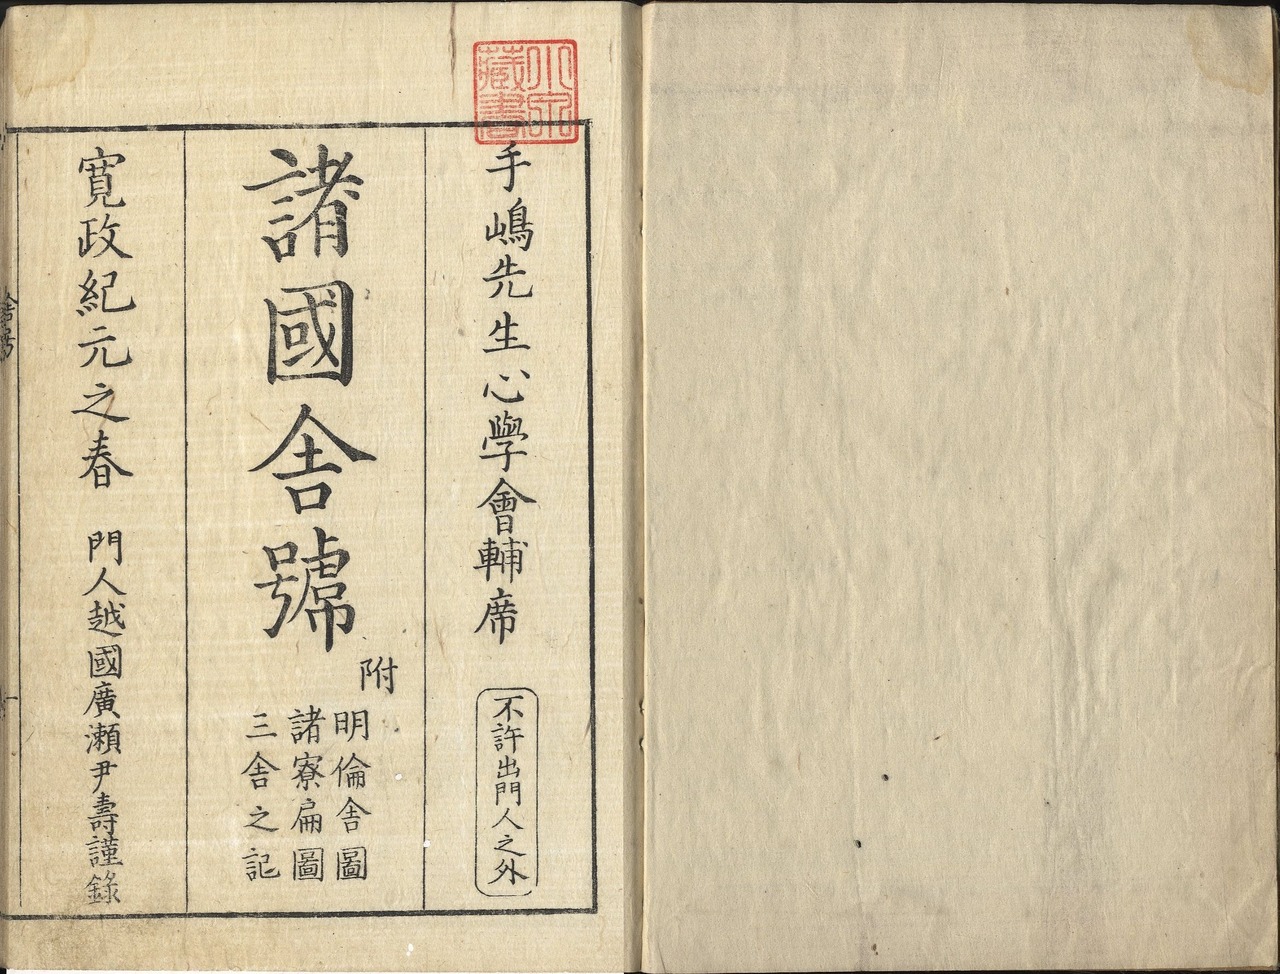 手嶋先生心學會輔席
不許出門人之外
諸國舎號
附
明倫舎圖
諸寮扁圖
三舎之記
寛政紀元之春 門人越國廣瀬尹壽謹錄
舎号
一